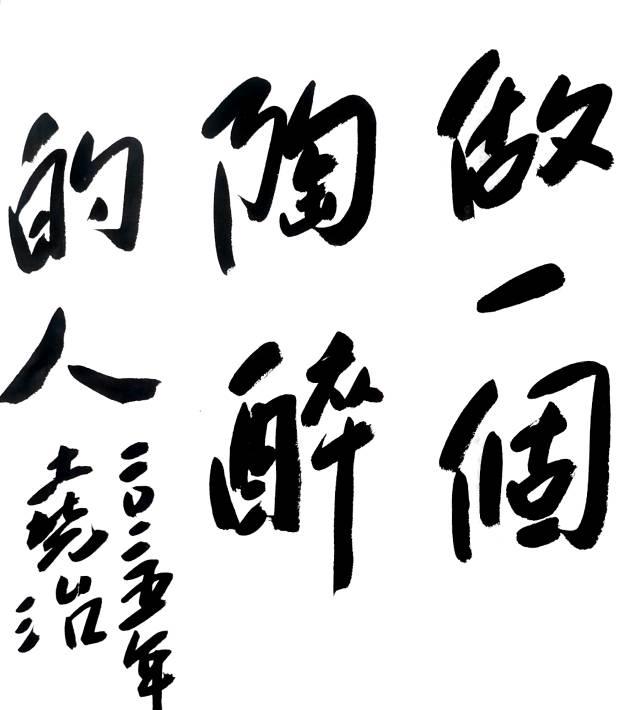 做一個
陶醉
的人
二〇二五年